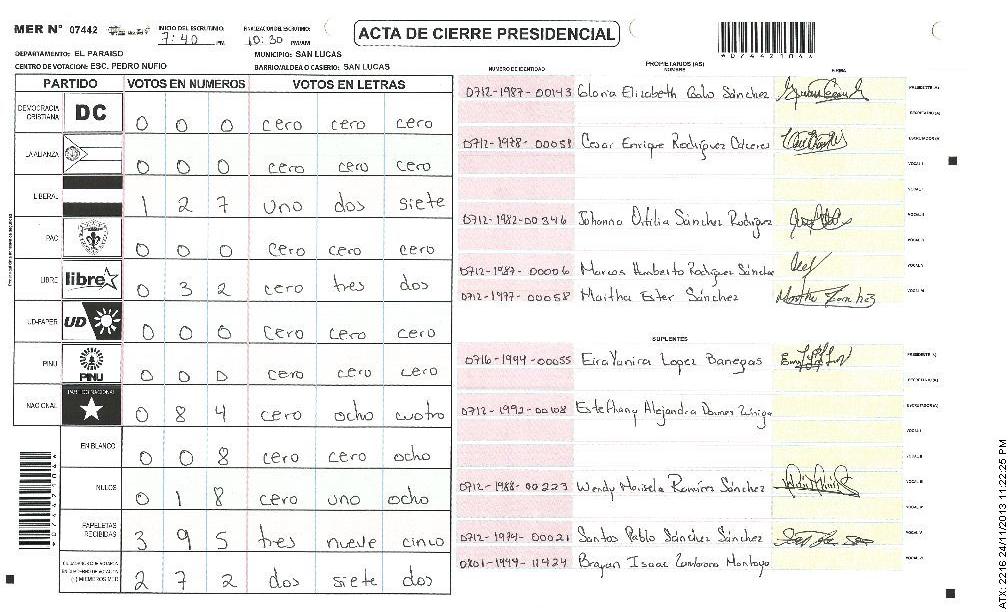 MER N° 07442 INICIO DEL ESCRUTINIO: 7:40 PM FINALIZACION DEL ESCRUTINIO: 10:30 PM/AM
ACTA DE CIERRE PRESIDENCIAL
DEPARTAMENTO: EL PARAISO MUNICIPIO: SAN LUCAS
CENTRO DE VOTACION: ESC. PEDRO NUFIO BARRIO/ALDEA O CASERIO: SAN LUCAS
PARTIDO VOTOS EN NUMEROS VOTOS EN LETRAS
DEMOCRACIA CRISTIANA DC 0 0 0 cero cero cero
LA ALIANZA 0 0 0 cero cero cero
LIBERAL 1 2 7 uno dos siete
PAC 0 0 0 cero cero cero
LIBRE libre 0 3 2 cero tres dos
UD-FAPER UD 0 0 0 cero cero cero
PINU PINU 0 0 0 cero cero cero
NACIONAL PARTIDO NACIONAL 0 8 4 cero ocho cuatro
EN BLANCO 0 0 8 cero cero ocho
NULOS 0 1 8 cero uno ocho
PAPELETAS RECIBIDAS 3 9 5 tres nueve cinco
2 7 2 dos siete dos
NUMERO DE IDENTIDAD PROPIETARIOS (AS) NOMBRE FIRMA
0712-1987-00143 Gloria Elizabeth Sánchez PRESIDENTE (A)
SECRETARIO (A)
0712-1978-00051 Cesar Enrique Rodríguez Cáceres ESCRUTADOR (A)
VOCAL I
0712-1982-00346 Johanna Otilia Sánchez Rodríguez
0712-1987-00006 Marcos Humberto Rodríguez Sánchez
0712-1977-00058 Martha Ester Sánchez
SUPLENTES
0716-1994-00055 Eira Yanira Lopez Banegas PRESIDENTE (A)
SECRETARIO (A)
0712-1992-00108 Estefhany Alejandra Zúniga ESCRUTADOR (A)
VOCAL I
VOCAL II
0712-1988-00223 Wendy Marisela Ramírez Sánchez VOCAL III
VOCAL IV
0712-1974-00021 Santos Pablo Sánchez Sánchez VOCAL V
0801-1994-11424 Brayan Isaac Zambrano Montoya
*07442104*
ATX: 2216 24/11/2013 11:22:25 PM